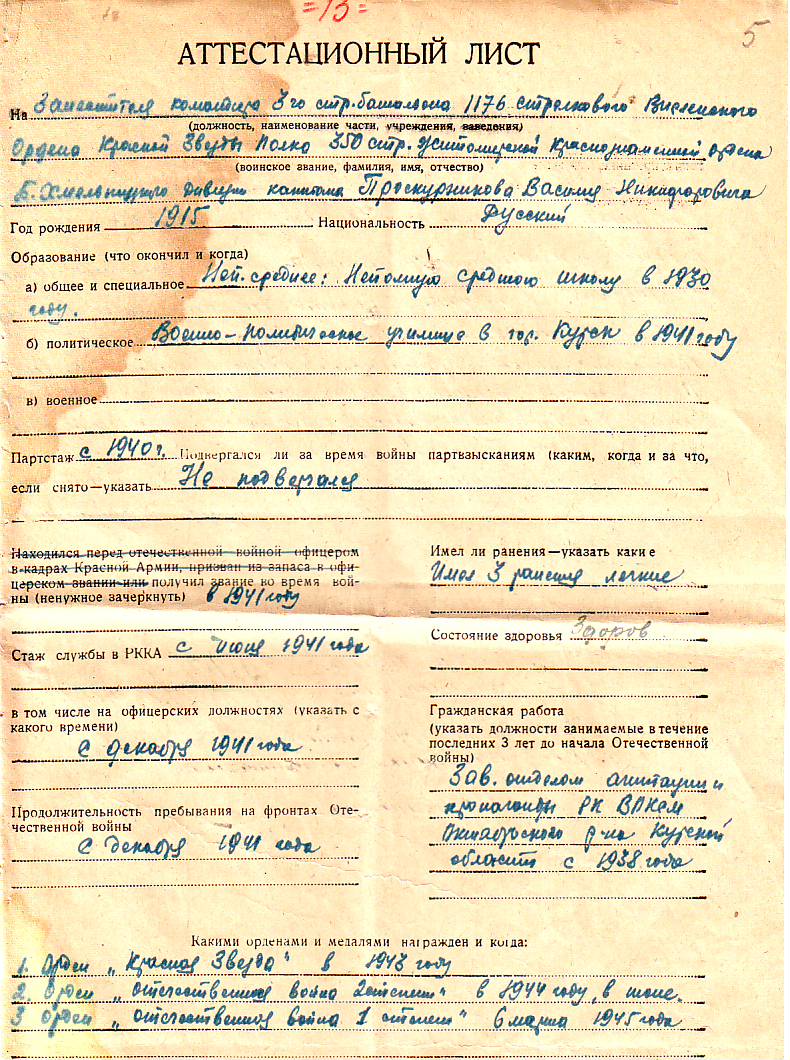 =13=
5
АТТЕСТАЦИОННЫЙ ЛИСТ
На Заместителя командира 3го стр. батальона 1176 стрелкового Виленского
(должность, наименование части, учреждения, заведения)
Ордена Красной Звезды Полка 350 стр. Житомирской Краснознаменной ордена
(воинское звание, фамилия, имя, отчество)
Б. Хмельницкого Дивизии капитана Проскурникова Василия Никифоровича
Год рождения 1915 Национальность Русский
Образование (что окончил и когда)
а) общее и специальное Неп. среднее: Неполную среднюю школу в 1930
году.
б) политическое Военно-политическое училище в гор. Курск в 1941 году
в) военное
Партстаж с 1940 г. Подвергался ли за время войны партвзысканиям (каким, когда и за что,
если снято—указать Не подвергался
Находился перед отечественной войной офицером
в кадрах Красной Армии, призван из запаса в офи-
церском звании или получил звание во время вой-
ны (ненужное зачеркнуть) в 1941 году
Стаж службы в РККА с июня 1941 года
в том числе на офицерских должностях (указать с
какого времени)
с декабря 1941 года
Продолжительность пребывания на фронтах Оте-
чественной войны
с декабря 1941 года
Имел ли ранения—указать какие
Имел 3 ранения легкие
Состояние здоровья Здоров
Гражданская работа
(указать должности занимаемые в течение
последних 3 лет до начала Отечественной
войны)
Зав. отделом агитации и
пропаганды РК ВЛКСМ
Октябрьского р-на Курской
области с 1938 года
Какими орденами и медалями награжден и когда:
1. Орден „Красная Звезда" в 1943 году
2. Орден „отечественная война 2 степени" в 1944 году, в июле.
3 Орден „отечественная война 1 степени" 6 марта 1945 года